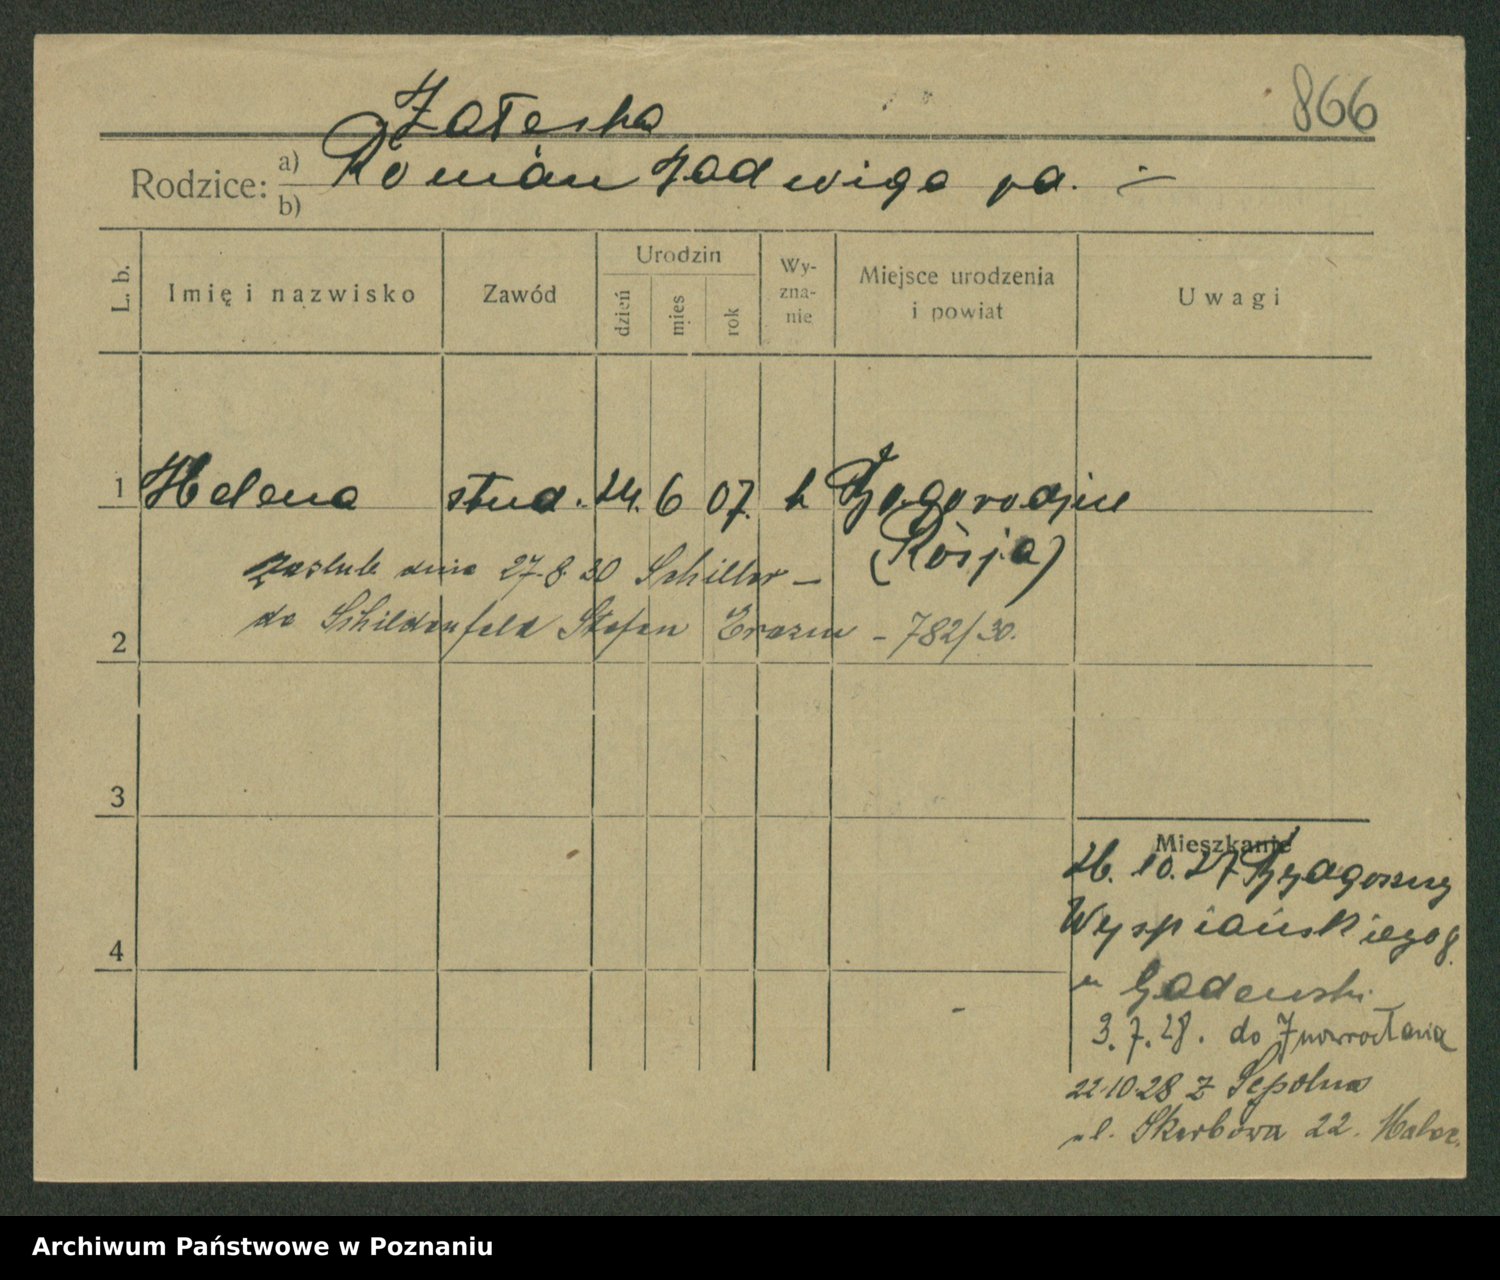 866
Załeska
Rodzice: a) Roman Jadwiga pa. ÷
b)
L. b. Imię i nazwisko Zawód Urodzin dzień mies rok Wyznanie Miejsce urodzenia i powiat Uwagi
1 Helena stud. 24. 6 07. k
(Rosja)
zaślub dnia 27.8.30 Schiller –
2 de Schildenfeld Stefan Erazm – 782/30.
3
Mieszkanie
26. 10. 27 Bydgoszcz
Wyspiańskiego 8.
4
u Gadewski
3. 7. 28. do Inowrocławia
22.10.28 z Sępolna
ul. Skarbowa 22.
Archiwum Państwowe w Poznaniu